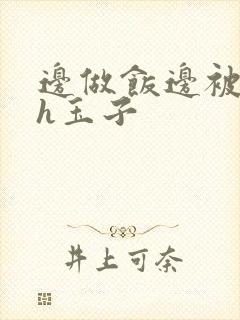 邊做飯邊被
h玉子
井上可奈